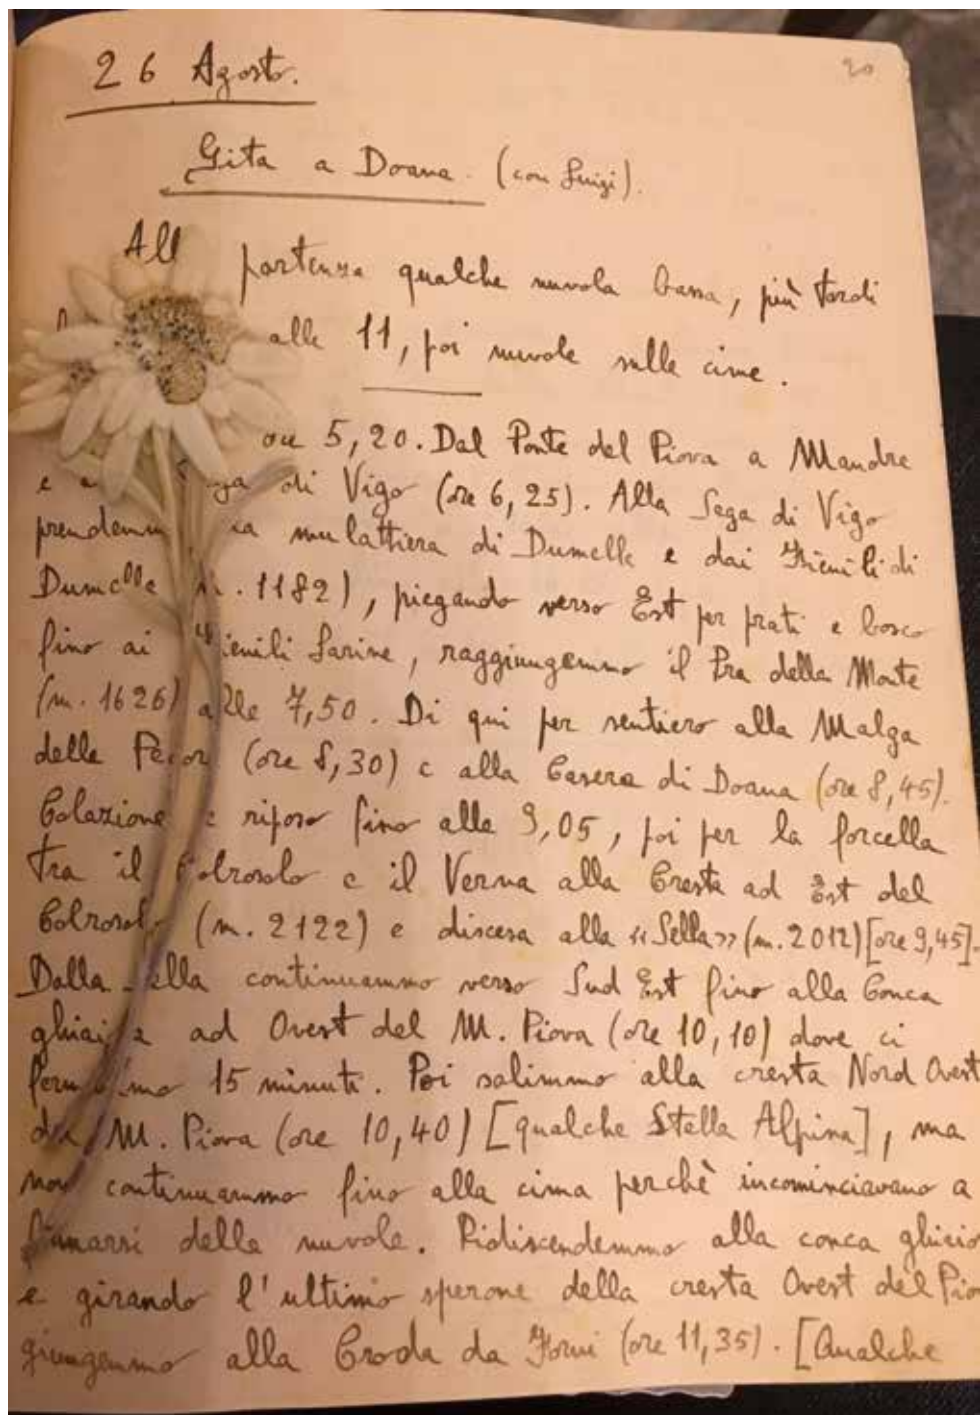 20
26 Agosto.
Gita a Doana. (con Luigi).
All partenza qualche nuvola bassa, più tardi
alle 11, poi nuvole sulle cime.
ore 5,20. Dal Ponte del Piova a Mandre
e a di Vigo (ore 6,25). Alla Sega di Vigo
prendemm la mulattiera di Dumelle e dai Fienili di
Dumelle m. 1182), piegando verso Est per prati e bosco
fino ai Fienili Larine, raggiungemmo il Pra della Monte
(m. 1626) alle 7,50. Di qui per sentiero alla Malga
delle (ore 8,30) e alla Casera di Doana (ore 8,45).
Colazione e riposo fino alle 9,05, poi per la forcella
tra il Colrosolo e il Verna alla Cresta ad Est del
Colrosolo (m. 2122) e discesa alla «Sella» (m. 2012) [ore 9,45].
Dalla Sella continuammo verso Sud Est fino alla Conca
ghiai a ad Ovest del M. Piova (ore 10,10) dove ci
ferm mmo 15 minuti. Poi salimmo alla cresta Nord Ovest
del M. Piova (ore 10,40) [qualche Stella Alpina], ma
non continuammo fino alla cima perchè incominciavano a
formarsi delle nuvole. Ridiscendemmo alla conca ghiaio
e girando l'ultimo sperone della cresta Ovest del Pio
giungemmo alla Croda da Forni (ore 11,35). [Qualche